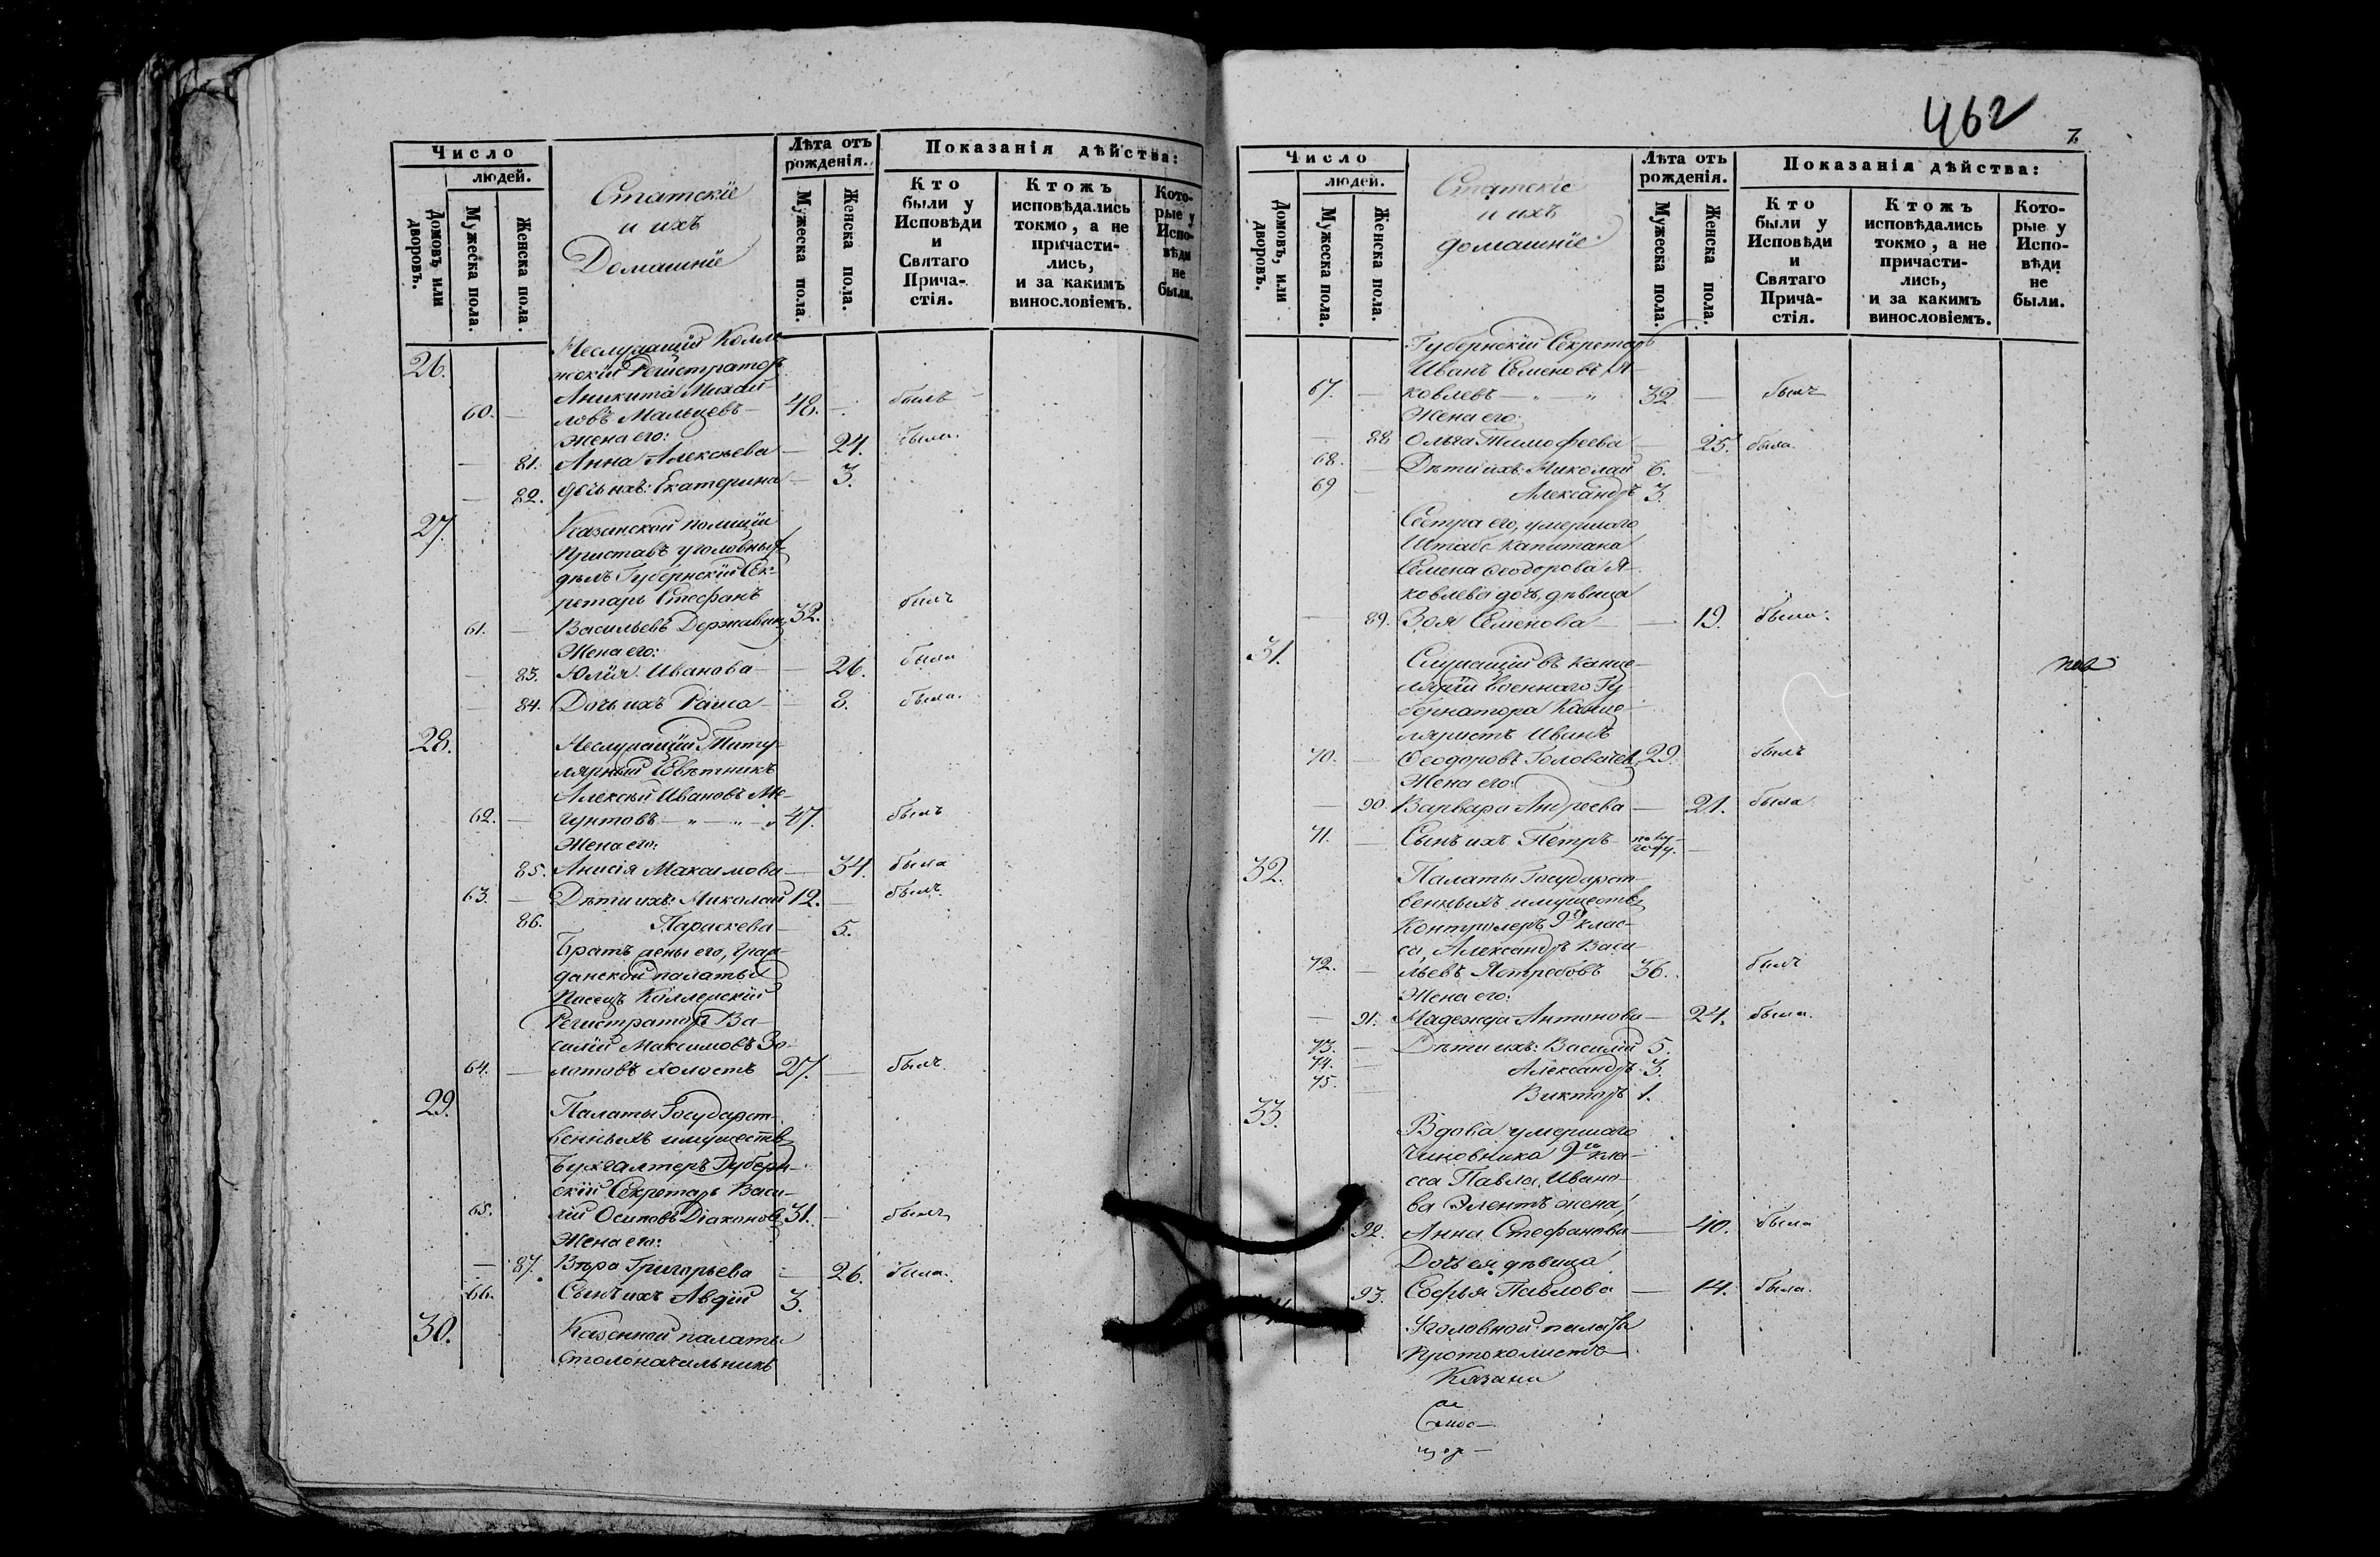 Число
людей.
Домовъ, или дворовъ.
Мужеска пола.
Женска пола.
Статскіе
и ихъ
Домашніе
Лѣта отъ рожденія.
Мужеска пола.
Женска пола.
Показанія дѣйства:
Кто были у Исповѣди и Святаго Прича-стія.
Ктожъ исповѣдались токмо, а не причасти-лись, и за какимъ винословіемъ.
Кото-рые у Испо-вѣди не были.
26. Неслужащій Колле-
жскій Регистраторъ
Аникита Михай-
60. — ловъ Мальцевъ — 48. — былъ
Жена его:
— 81. Анна Алексѣева — 24. была.
— 82. Дочь ихъ: Екатерина — 3.
27. Казанской полиціи
Приставъ уголовныхъ
дѣлъ Губернскій Сек-
ретарь Стефанъ
61. — Васильевъ Державинъ 32. былъ
Жена его:
— 83. Юлія Иванова — 26. была
— 84. Дочь ихъ Раиса — 8. была.
28. Неслужащій Титу-
лярный Совѣтникъ
Алексѣй Ивановъ Ме-
62. — гунтовъ — „ — „ — „ 47. былъ
Жена его:
85. Анисія Максимова — 34. была
63. — Дѣти ихъ: Николай 12. — былъ.
86. Параскева — 5.
Братъ жены его, граж-
данской палаты
Писецъ Коллежскій
Регистраторъ Ва-
силій Максимовъ Зо-
64. — лотовъ холостъ 27. — былъ.
29. Палаты Государст-
венныхъ имуществъ
Бухгалтеръ Губерн-
скій Секретарь Васи-
65. лій Осиповъ Діаконовъ 31. — былъ
Жена его:
— 87. Вѣра Григорьева — 26. была.
66. Сынъ ихъ Авдій 3.
30. Казенной палаты
Столоначальникъ
462
7.
Число
людей.
Домовъ, или дворовъ.
Мужеска пола.
Женска пола.
Статскіе
и ихъ
домашніе
Лѣта отъ рожденія.
Мужеска пола.
Женска пола.
Показанія дѣйства:
Кто были у Исповѣди и Святаго Прича-стія.
Ктожъ исповѣдались токмо, а не причасти-лись, и за какимъ винословіемъ.
Кото-рые у Испо-вѣди не были.
Губернскій Секретарь
Иванъ Семеновъ Я-
67. — ковлевъ — „ — „ 32 — былъ
Жена его:
— 88 Ольга Тимофеева — 25. была.
68. — Дѣти ихъ: Николай 6. —
69 — Александръ 3.
Сестра его, умершаго
Штабс Капитана
Семена Ѳеодорова Я-
ковлева дочь, дѣвица
— 89. Зоя Семенова — — 19. была.
31. Служащій въ Канце-
ляріи Военнаго Гу-
бернатора Канце-
ляристъ Иванъ
70. — Ѳеодоровъ Головачевъ 29. былъ
Жена его:
— 90. Варвара Андреева — 21. была
71. — Сынъ ихъ Петръ — полу-
году. —
32. Палаты Государст-
венныхъ имуществъ
Контролеръ 9го клас-
са, Александръ Васи-
72. — льевъ Ястребовъ 36. былъ
Жена его:
— 91. Надежда Антонова — 24. была.
73. — Дѣти ихъ: Василій 5.
74. — Александръ 3.
75. — Викторъ 1.
33. Вдова умершаго
Чиновника 9го кла-
сса Павла Ивано-
ва Элентъ жена,
92. Анна Стефанова — 40. была
Дочь ея дѣвица
93. Софья Павлова — 14. была.
Уголовной палаты
Протоколистъ
Казани